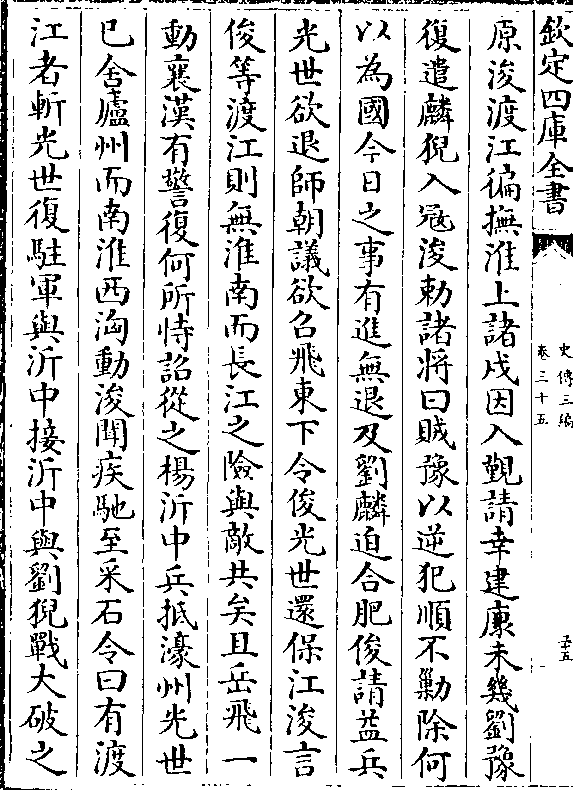 欽定四庫全書
史傳三編
卷三十五
五十五
原浚渡江徧撫淮上諸戍因入覲請幸建康未幾劉豫
復遣麟猊入冦浚勅諸將曰賊豫以逆犯順不勦除何
以為國今日之事有進無退及劉麟迫合肥俊請益兵
光世欲退師朝議欲召飛東下令俊光世還保江浚言
俊等渡江則無淮南而長江之險與敵共矣且岳飛一
動襄漢有警復何所恃詔從之楊沂中兵抵濠州光世
已舍廬州而南淮西洶動浚聞疾馳至采石令曰有渡
江者斬光世復駐軍與沂中接沂中與劉猊戰大破之